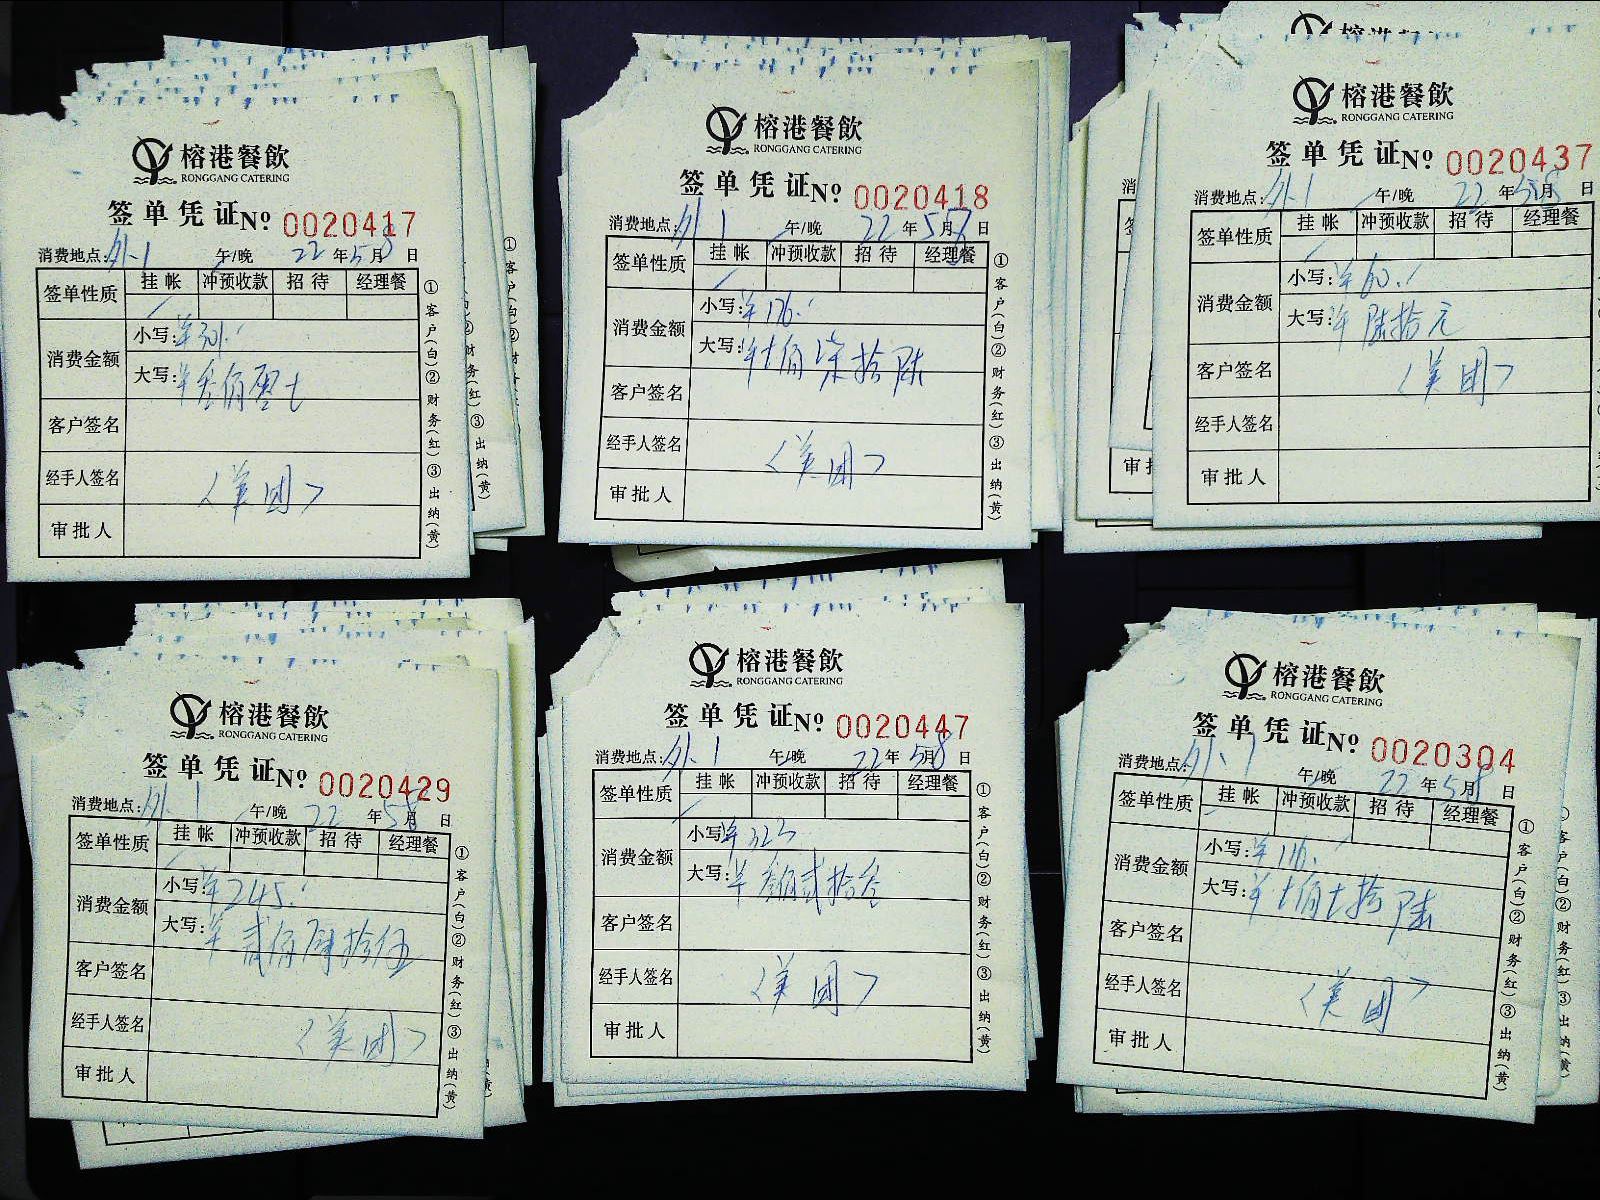 榕港餐飲
RONGGANG CATERING
签单凭证 No 0020417
消费地点: 外1 午/晚 22年5月8日
签单性质 挂帐 冲预收款 招待 经理餐
消费金额 小写:
大写:
客户签名
经手人签名 〈美团〉
审批人
①客户(白)②财务(红)③出纳(黄)
榕港餐飲
RONGGANG CATERING
签单凭证 No 0020418
消费地点: 外1 午/晚 22年5月8日
签单性质 挂帐 冲预收款 招待 经理餐
消费金额 小写: ¥176.
大写: ¥ 佰柒拾陆
客户签名
经手人签名 〈美团〉
审批人
①客户(白)②财务(红)③出纳(黄)
榕港餐飲
RONGGANG CATERING
签单凭证 No 0020437
消费地点: 外1 午/晚 22年5月8日
签单性质 挂帐 冲预收款 招待 经理餐
消费金额 小写: ¥60.
大写: ¥陆拾元
客户签名 〈美团〉
经手人签名
审批人
榕港餐飲
RONGGANG CATERING
签单凭证 No 0020429
消费地点: 外1 午/晚 22年5月8日
签单性质 挂帐 冲预收款 招待 经理餐
消费金额 小写: ¥245.
大写: ¥贰佰肆拾伍
客户签名
经手人签名 〈美团〉
审批人
①客户(白)②财务(红)③出纳(黄)
榕港餐飲
RONGGANG CATERING
签单凭证 No 0020447
消费地点: 外1 午/晚 22年5月8日
签单性质 挂帐 冲预收款 招待 经理餐
消费金额 小写: ¥323
大写: ¥叁佰贰拾叁
客户签名
经手人签名 〈美团〉
审批人
①客户(白)②财务(红)③出纳(黄)
榕港餐飲
RONGGANG CATERING
签单凭证 No 0020304
消费地点: 外1 午/晚 22年5月8日
签单性质 挂帐 冲预收款 招待 经理餐
消费金额 小写:
大写:
客户签名
经手人签名 〈美团〉
审批人
①客户(白)②财务(红)③出纳(黄)